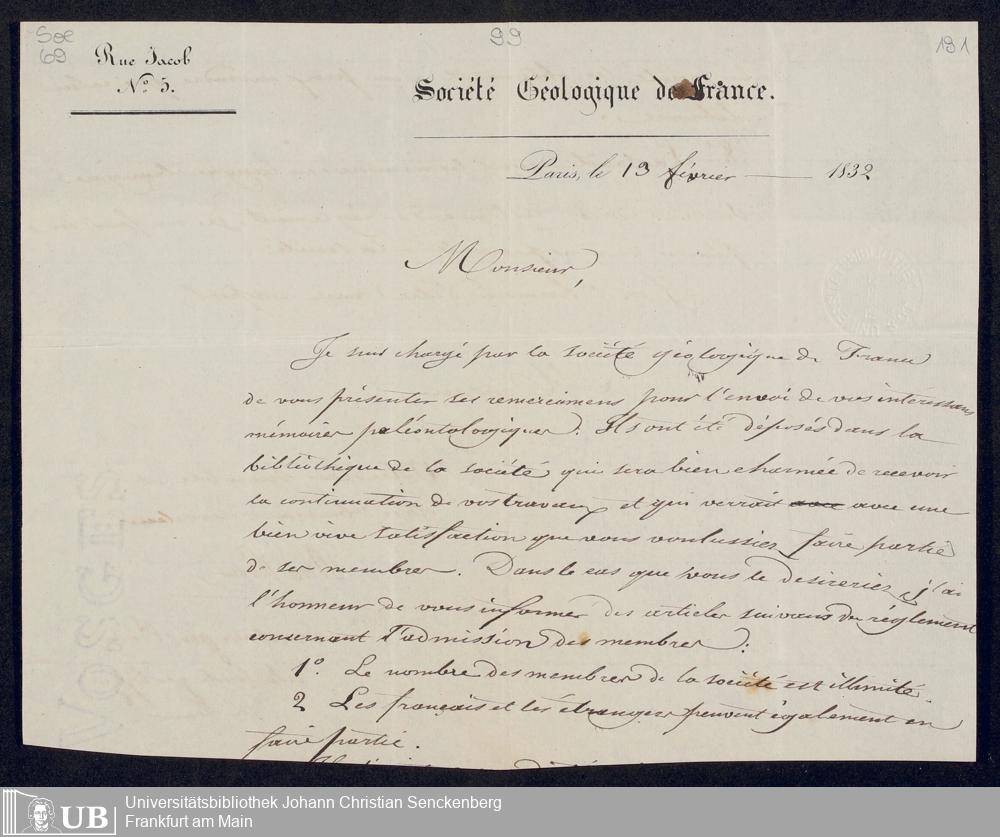 Soc
69
99
191
Rue Jacob
N.º 5.
Société Géologique de France.
Paris, le 13 février 1832
Monsieur,
Je suis chargé par la société géologique de France
de vous présenter ses remercimens pour l'envoi de vos intéressans
mémoires paléontologiques. Ils ont été déposés dans la
bibliothèque de la société, qui sera bien charmée de recevoir
la continuation de vos travaux, et qui verrait avec avec une
bien vive satisfaction que vous voulussiez faire partie
de ses membres. Dans le cas que vous le desireriez, j'ai
l'honneur de vous informer des articles suivans du réglement
concernant l'admission des membres:
1º. Le nombre des membres de la société est illimité.
2 Les français et les étrangers peuvent également en
faire partie.
VOSGES
Universitätsbibliothek Johann Christian Senckenberg
Frankfurt am Main
UB